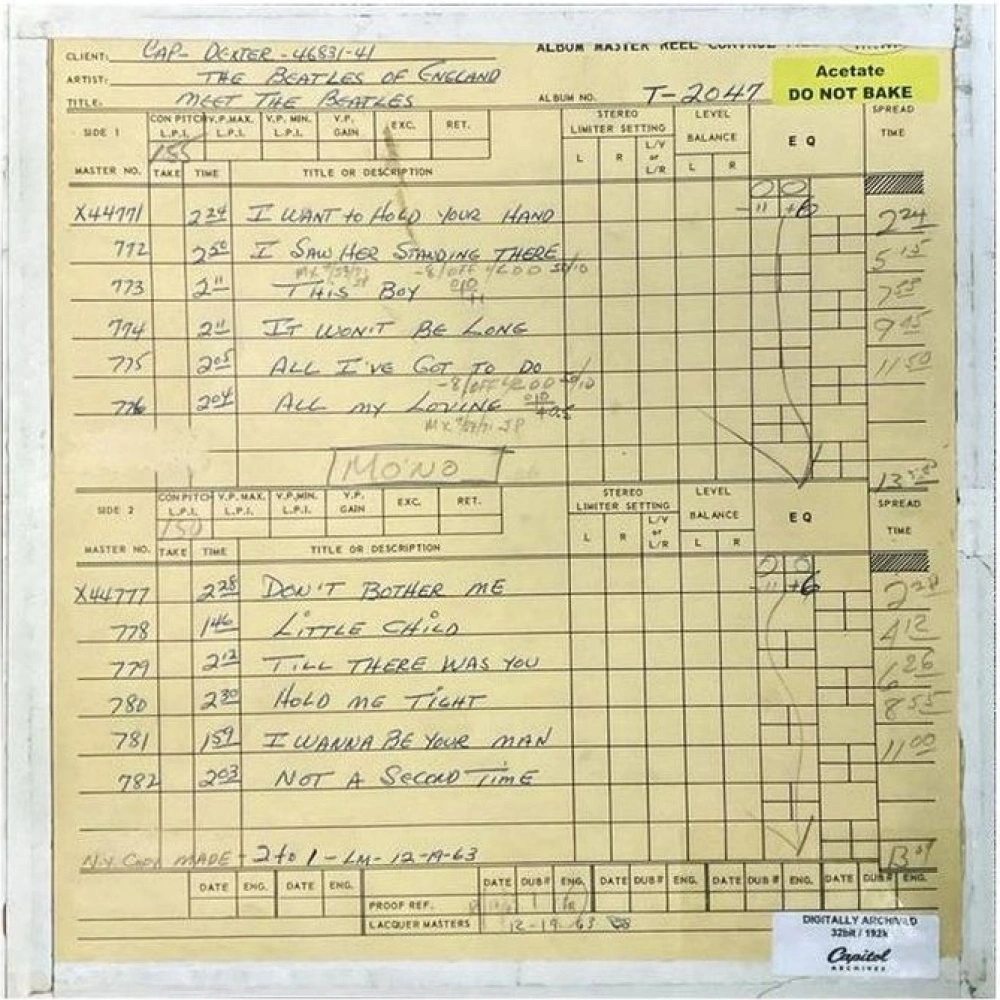 CLIENT: CAP- DEXTER -46831-41
ALBUM MASTER REEL
ARTIST: THE BEATLES OF ENGLAND
Acetate
DO NOT BAKE
TITLE: MEET THE BEATLES ALBUM NO. T-2047
SIDE 1 CON PITCH L.P.I. V.P.MAX. L.P.I. V.P. MIN. L.P.I. V.P. GAIN EXC. RET. STEREO LIMITER SETTING L R L/V or L/R LEVEL BALANCE L R E Q SPREAD TIME
155
MASTER NO. TAKE TIME TITLE OR DESCRIPTION
0 0
X44771 2 24 I WANT to HOLD YOUR HAND -11 +6 2 24
772 2 50 I SAW HER STANDING THERE 5 15
-8/OFF
773 2 11 THIS BOY 7 55
774 2 11 IT WON'T BE LONG 9 45
775 2 05 ALL I'VE GOT TO DO 11 50
-8/OFF
776 2 04 ALL MY LOVING
MONO 13 55
SIDE 2 CON PITCH L.P.I. V.P. MAX. L.P.I. V.P.MIN. L.P.I. V.P. GAIN EXC. RET. STEREO LIMITER SETTING L R L/V or L/R LEVEL BALANCE L R E Q SPREAD TIME
150
MASTER NO. TAKE TIME TITLE OR DESCRIPTION
0 0
X44777 2 28 DON'T BOTHER ME -11 +6 2 28
778 1 46 LITTLE CHILD 4 12
779 2 12 TILL THERE WAS YOU 6 26
780 2 30 HOLD ME TIGHT 8 55
781 1 59 I WANNA BE YOUR MAN 11 00
782 2 03 NOT A SECOND TIME
N.Y. COPY MADE - 2 to 1 - LM - 12-19-63 13 09
DATE ENG. DATE ENG. DATE DUB# ENG. DATE DUB# ENG. DATE DUB # ENG. DATE DUB# ENG.
PROOF REF.
LACQUER MASTERS 12-19-63
DIGITALLY ARCHIVED
32bit / 192k
Capitol
ARCHIVES